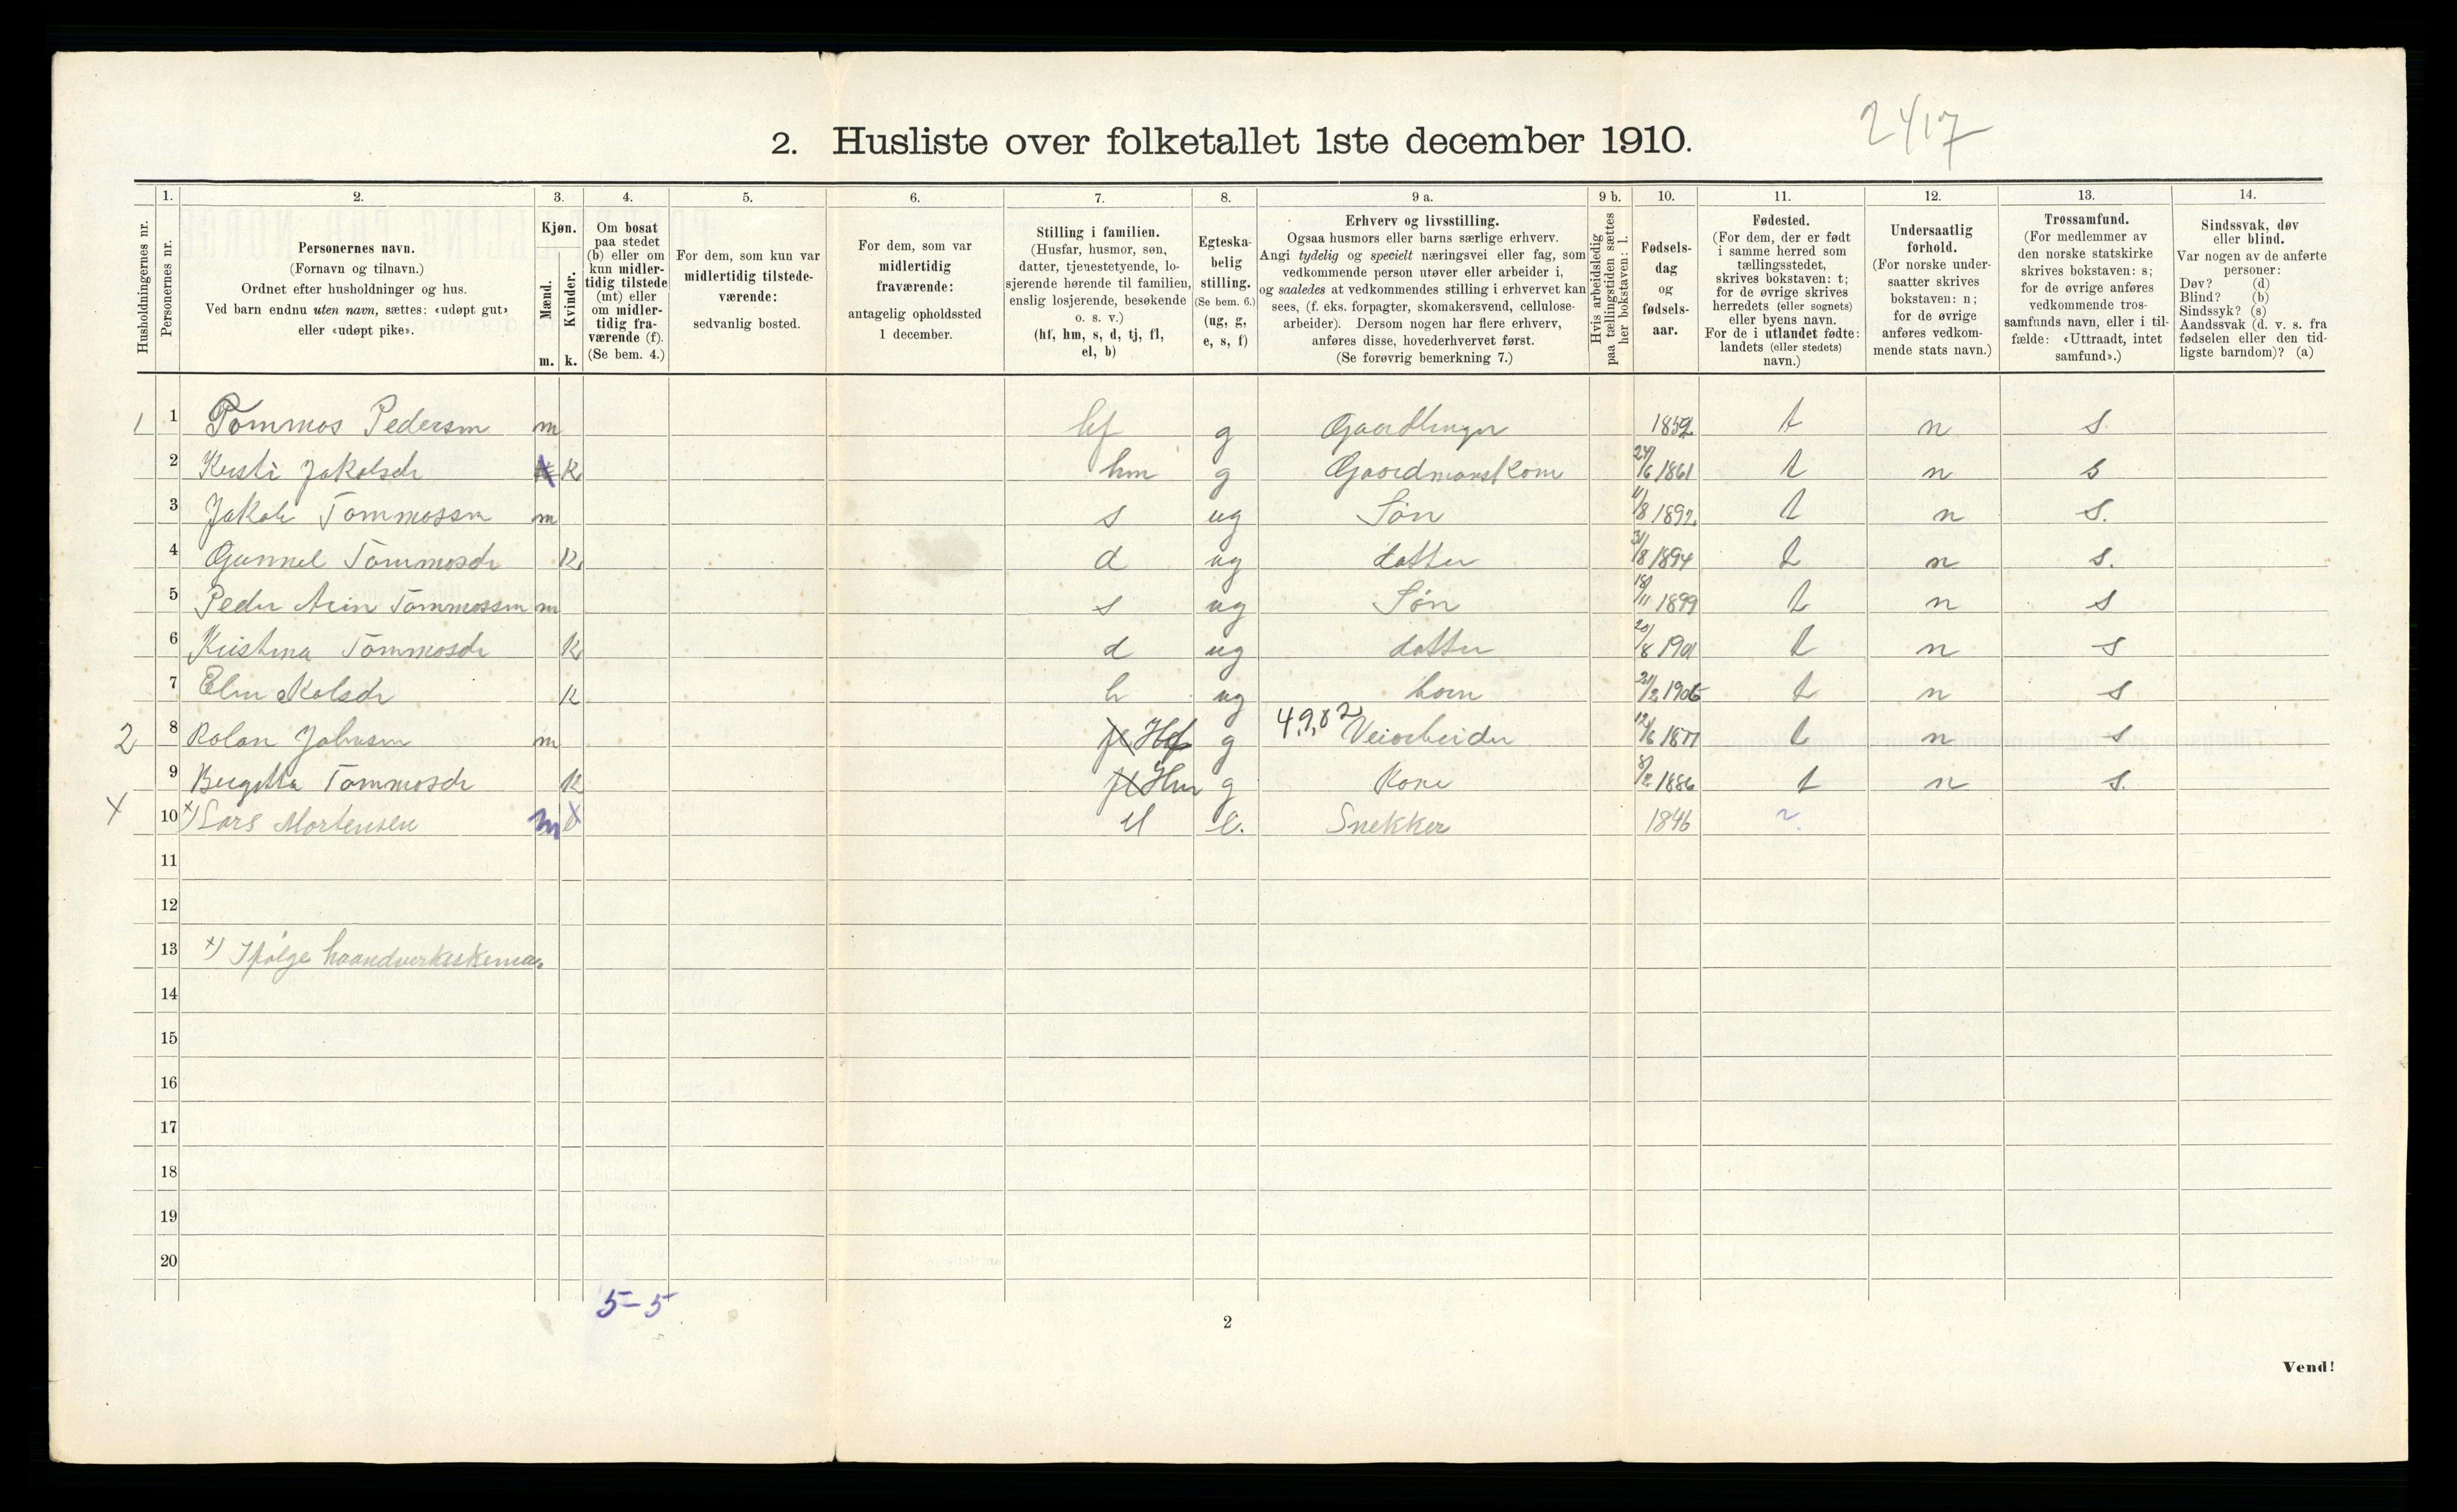 2417
2. Husliste over folketallet 1ste december 1910.
Husholdningernes nr.
1.
Personernes nr.
2.
Personernes navn.
(Fornavn og tilnavn.)
Ordnet efter husholdninger og hus.
Ved barn endnu uten navn, sættes: «udøpt gut»
eller «udøpt pike».
3.
Kjøn.
Mænd.
Kvinder.
m. k.
4.
Om bosat
paa stedet
(b) eller om
kun midler-
tidig tilstede
(mt) eller
om midler-
tidig fra-
værende (f).
(Se bem. 4.)
5.
For dem, som kun var
midlertidig tilstede-
værende:
sedvanlig bosted.
6.
For dem, som var
midlertidig
fraværende:
antagelig opholdssted
1 december.
7.
Stilling i familien.
(Husfar, husmor, søn,
datter, tjenestetyende, lo-
sjerende hørende til familien,
enslig losjerende, besøkende
o. s. v.)
(hf, hm, s, d, tj, fl,
el, b)
8.
Egteska-
belig
stilling.
(Se bem. 6.)
(ug, g,
e, s, f)
9 a.
Erhverv og livsstilling.
Ogsaa husmors eller barns særlige erhverv.
Angi tydelig og specielt næringsvei eller fag, som
vedkommende person utøver eller arbeider i,
og saaledes at vedkommendes stilling i erhvervet kan
sees, (f. eks. forpagter, skomakersvend, cellulose-
arbeider). Dersom nogen har flere erhverv,
anføres disse, hovederhvervet først.
(Se forøvrig bemerkning 7.)
9 b.
Hvis arbeidsledig
paa tællingstiden sættes
her bokstaven: l.
10.
Fødsels-
dag
og
fødsels-
aar.
11.
Fødested.
(For dem, der er født
i samme herred som
tællingsstedet,
skrives bokstaven: t;
for de øvrige skrives
herredets (eller sognets)
eller byens navn.
For de i utlandet fødte:
landets (eller stedets)
navn.)
12.
Undersaatlig
forhold.
(For norske under-
saatter skrives
bokstaven: n;
for de øvrige
anføres vedkom-
mende stats navn.)
13.
Trossamfund.
(For medlemmer av
den norske statskirke
skrives bokstaven: s;
for de øvrige anføres
vedkommende tros-
samfunds navn, eller i til-
fælde: «Uttraadt, intet
samfund».)
14.
Sindssvak, døv
eller blind.
Var nogen av de anførte
personer:
Døv? (d)
Blind? (b)
Sindssyk? (s)
Aandssvak (d. v. s. fra
fødselen eller den tid-
ligste barndom)? (a)
1 1 Tommos Pedersen m hf g 1852 t n s.
2 Kirsti Jakobsdr k hm g Gaardmanskone 24/6 1861 t n s
3 Jakob Tommossen m s ug Søn 11/8 1892 t n s.
4 Gunnel Tommosdr k d ug datter 31/8 1894 t n s.
5 Peder Arin Tommossen m s ug Søn 18/11 1899 t n s
6 Kristina Tommosdr k d ug datter 20/8 1901 t n s
7 k ug 1906 t n s
2 8 Rolan Johnsen m fl Hf g 4982 Veiarbeider 12/6 1877 t n s
9 Bergitta Tommosdr k fl Hm g Kone 8/2 1886 t n s.
x 10 x) Lars Mortensen m el e. Snekker 1846
11
12
13 x) Ifølge haandverkeskema.
14
15
16
17
18
19
20
5-5
2
Vend!